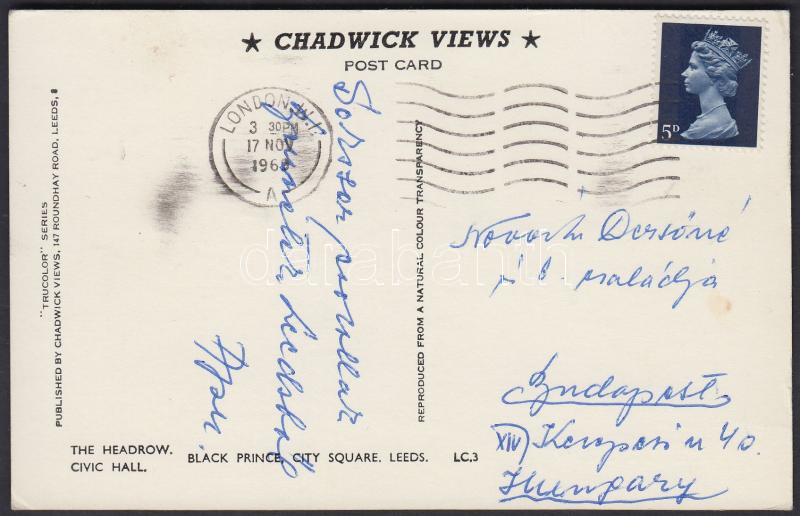 ★ CHADWICK VIEWS ★
POST CARD
LONDON. W.1.
3 30PM
17 NOV
196
A
5D
"TRUCOLOR" SERIES
PUBLISHED BY CHADWICK VIEWS, 147 ROUNDHAY ROAD, LEEDS, 8
Sokszor
Leedsből
REPRODUCED FROM A NATURAL COLOUR TRANSPARENCY
Dersőné
családja
Budapest
XIV Kerepesi u 40.
Hungary
THE HEADROW.
CIVIC HALL.
BLACK PRINCE, CITY SQUARE. LEEDS.
LC.3
darabanth